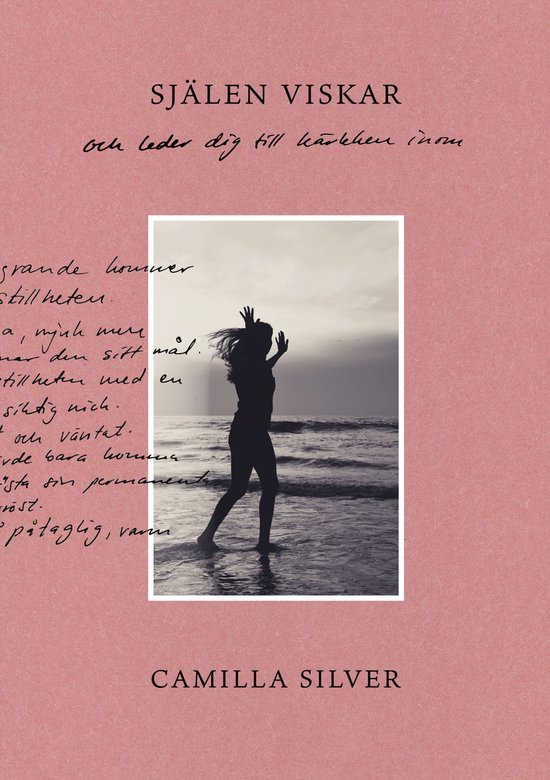 SJÄLEN VISKAR
och leder dig till kärleken inom
grande kommer
stillheten.
a, mjuk men
nar den sitt mål.
stillheten med en
siktig nich.
och väntat.
bara komma
sin permanent
röst.
påtaglig, varm
CAMILLA SILVER